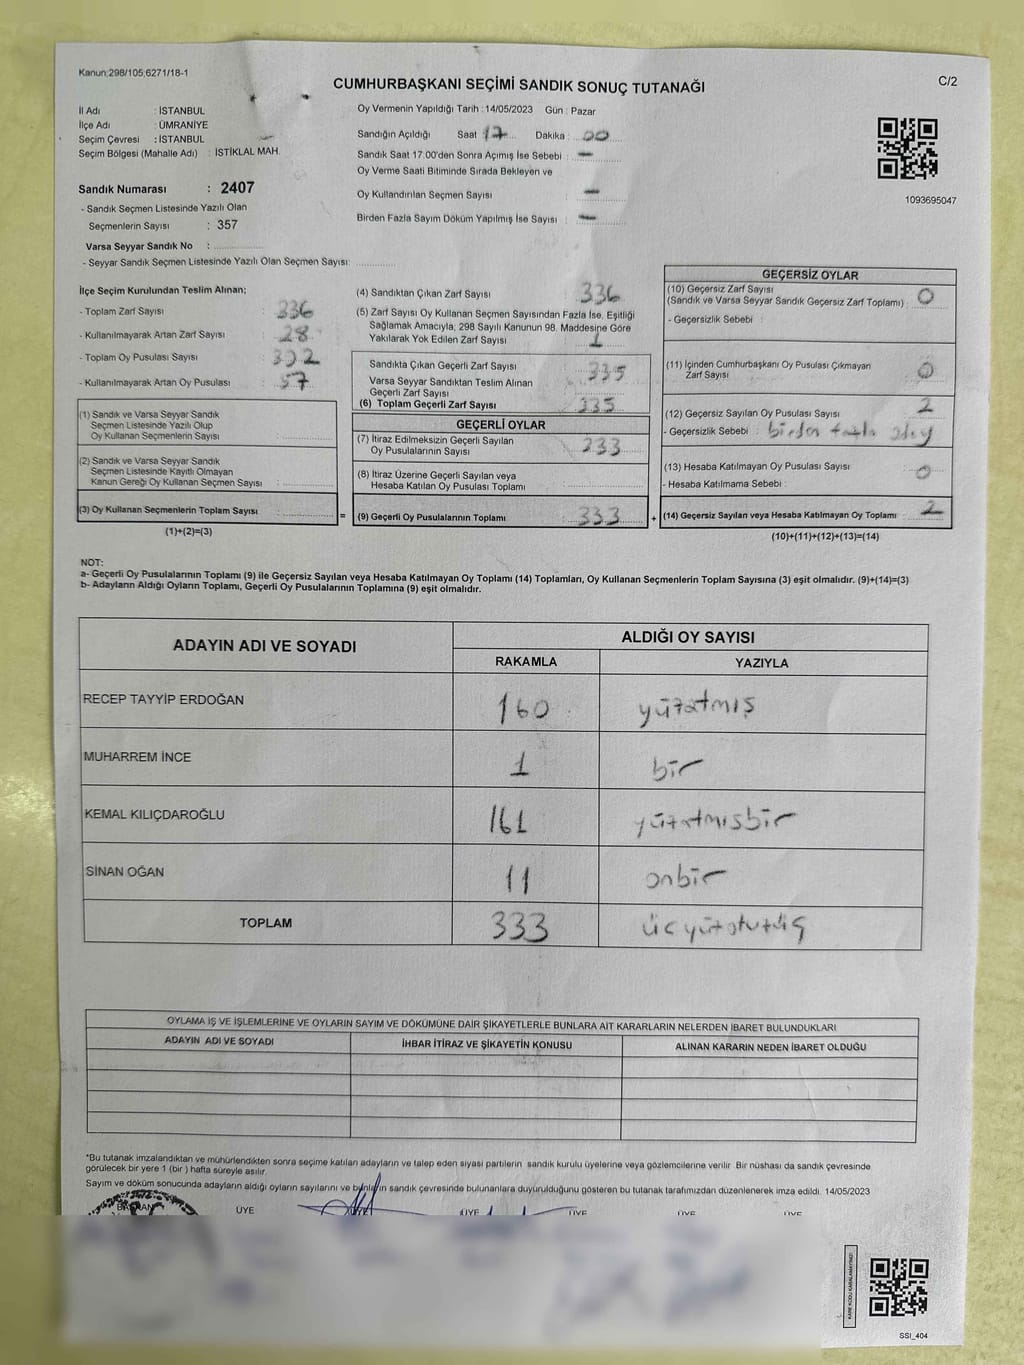 Kanun:298/105;6271/18-1
CUMHURBAŞKANI SEÇİMİ SANDIK SONUÇ TUTANAĞI
C/2
İl Adı : İSTANBUL
İlçe Adı : ÜMRANİYE
Seçim Çevresi : İSTANBUL
Seçim Bölgesi (Mahalle Adı) : İSTİKLAL MAH.
Sandık Numarası : 2407
- Sandık Seçmen Listesinde Yazılı Olan
Seçmenlerin Sayısı : 357
Varsa Seyyar Sandık No :
- Seyyar Sandık Seçmen Listesinde Yazılı Olan Seçmen Sayısı:
Oy Vermenin Yapıldığı Tarih :14/05/2023 Gün : Pazar
Sandığın Açıldığı Saat : 17 Dakika : 00
Sandık Saat 17:00'den Sonra Açımış İse Sebebi : —
Oy Verme Saati Bitiminde Sırada Bekleyen ve
Oy Kullandırılan Seçmen Sayısı : —
Birden Fazla Sayım Döküm Yapılmış İse Sayısı : —
1093695047
İlçe Seçim Kurulundan Teslim Alınan;
- Toplam Zarf Sayısı : 336
- Kullanılmayarak Artan Zarf Sayısı : 28
- Toplam Oy Pusulası Sayısı :
- Kullanılmayarak Artan Oy Pusulası : 57
(1) Sandık ve Varsa Seyyar Sandık
Seçmen Listesinde Yazılı Olup
Oy Kullanan Seçmenlerin Sayısı :
(2) Sandık ve Varsa Seyyar Sandık
Seçmen Listesinde Kayıtlı Olmayan
Kanun Gereği Oy Kullanan Seçmen Sayısı :
(3) Oy Kullanan Seçmenlerin Toplam Sayısı :
(1)+(2)=(3)
=
(4) Sandıktan Çıkan Zarf Sayısı : 336
(5) Zarf Sayısı Oy Kullanan Seçmen Sayısından Fazla İse, Eşitliği
Sağlamak Amacıyla; 298 Sayılı Kanunun 98. Maddesine Göre
Yakılarak Yok Edilen Zarf Sayısı : 1
Sandıkta Çıkan Geçerli Zarf Sayısı : 335
Varsa Seyyar Sandıktan Teslim Alınan
Geçerli Zarf Sayısı :
(6) Toplam Geçerli Zarf Sayısı : 335
GEÇERLİ OYLAR
(7) İtiraz Edilmeksizin Geçerli Sayılan
Oy Pusulalarının Sayısı : 233
(8) İtiraz Üzerine Geçerli Sayılan veya
Hesaba Katılan Oy Pusulası Toplamı :
(9) Geçerli Oy Pusulalarının Toplamı : 333
+
GEÇERSİZ OYLAR
(10) Geçersiz Zarf Sayısı
(Sandık ve Varsa Seyyar Sandık Geçersiz Zarf Toplamı) : 0
- Geçersizlik Sebebi :
(11) İçinden Cumhurbaşkanı Oy Pusulası Çıkmayan
Zarf Sayısı : 0
(12) Geçersiz Sayılan Oy Pusulası Sayısı : 2
- Geçersizlik Sebebi : birden fazla
(13) Hesaba Katılmayan Oy Pusulası Sayısı : 0
- Hesaba Katılmama Sebebi :
(14) Geçersiz Sayılan veya Hesaba Katılmayan Oy Toplamı : 2
(10)+(11)+(12)+(13)=(14)
NOT:
a- Geçerli Oy Pusulalarının Toplamı (9) ile Geçersiz Sayılan veya Hesaba Katılmayan Oy Toplamı (14) Toplamları, Oy Kullanan Seçmenlerin Toplam Sayısına (3) eşit olmalıdır. (9)+(14)=(3)
b- Adayların Aldığı Oyların Toplamı, Geçerli Oy Pusulalarının Toplamına (9) eşit olmalıdır.
ADAYIN ADI VE SOYADI
ALDIĞI OY SAYISI
RAKAMLA YAZIYLA
RECEP TAYYİP ERDOĞAN 160 yüzatmış
MUHARREM İNCE 1 bir
KEMAL KILIÇDAROĞLU 161 yüzatmısbir
SİNAN OĞAN 11 onbir
TOPLAM 333 üçyüzotuzüç
OYLAMA İŞ VE İŞLEMLERİNE VE OYLARIN SAYIM VE DÖKÜMÜNE DAİR ŞİKAYETLERLE BUNLARA AİT KARARLARIN NELERDEN İBARET BULUNDUKLARI
ADAYIN ADI VE SOYADI İHBAR İTİRAZ VE ŞİKAYETİN KONUSU ALINAN KARARIN NEDEN İBARET OLDUĞU
*Bu tutanak imzalandıktan ve mühürlendikten sonra seçime katılan adayların ve talep eden siyasi partilerin sandık kurulu üyelerine veya gözlemcilerine verilir. Bir nüshası da sandık çevresinde
görülecek bir yere 1 (bir ) hafta süreyle asılır.
Sayım ve döküm sonucunda adayların aldığı oyların sayılarını ve bunların sandık çevresinde bulunanlara duyurulduğunu gösteren bu tutanak tarafımızdan düzenlenerek imza edildi. 14/05/2023
BAŞKAN ÜYE ÜYE ÜYE ÜYE ÜYE ÜYE
SSI_404